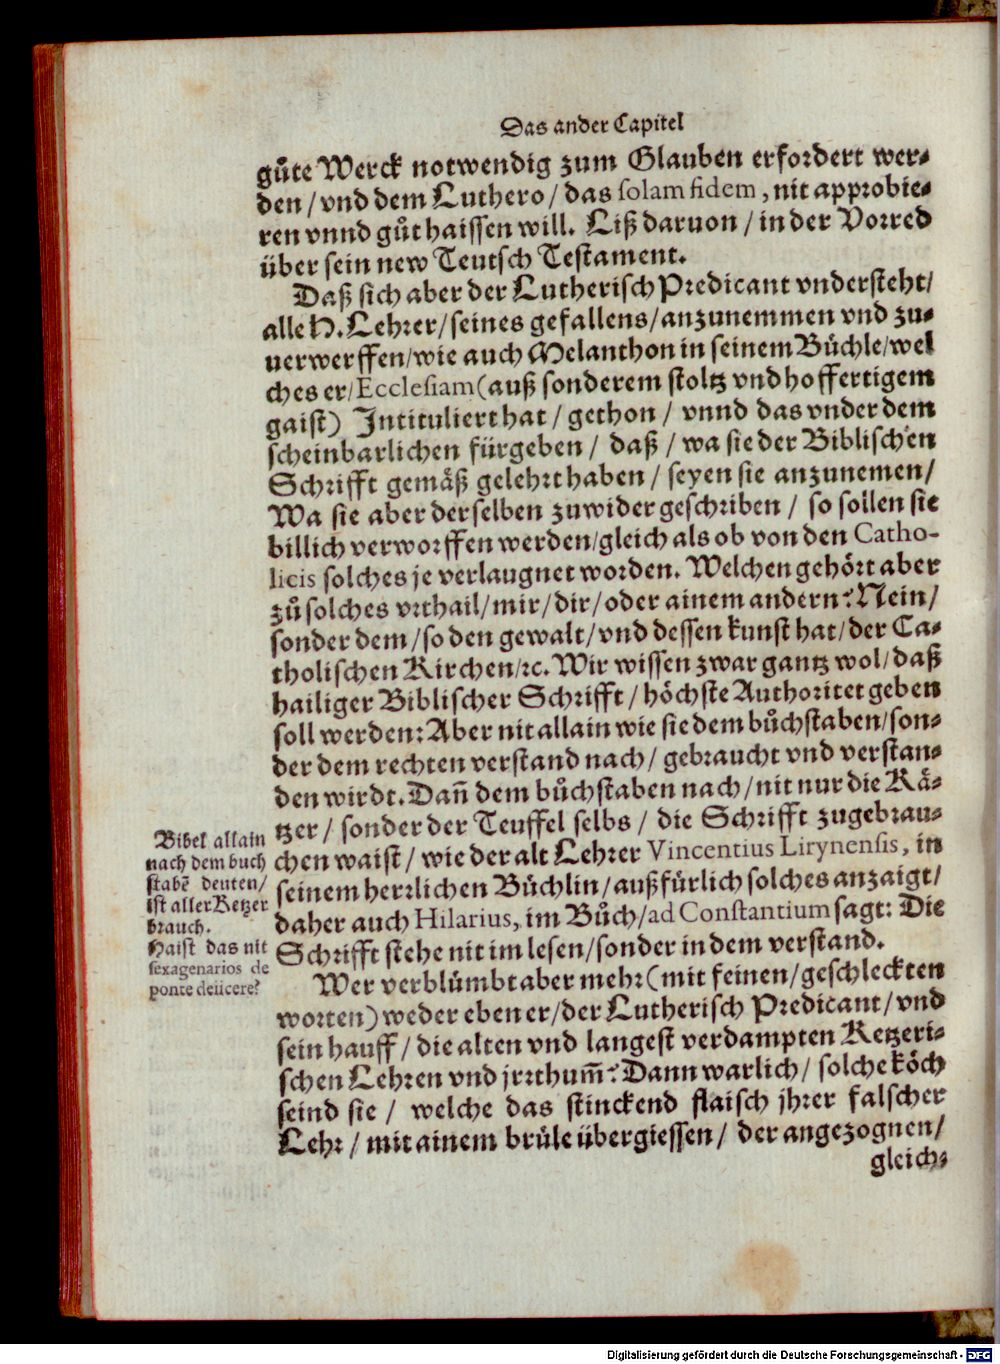 Das ander Capitel
guͦte Werck notwendig zum Glauben erfordert wer⸗
den / vnd dem Luthero / das solam fidem , nit approbie⸗
ren vnnd guͦt haissen will. Liß daruon / in der Vorred
über sein new Teutsch Testament.
Daß sich aber der Lutherisch Predicant vndersteht/
alle H. Lehrer/ seines gefallens/ anzunemmen vnd zu⸗
uerwerffen/ wie auch Melanthon in seinem Buͤchle/ wel
ches er/ Ecclesiam (auß sonderem stoltz vnd hoffertigem
gaist) Intituliert hat / gethon / vnnd das vnder dem
scheinbarlichen fürgeben / daß / wa sie der Biblischen
Schrifft gemaͤß gelehrt haben / seyen sie anzunemen/
Wa sie aber derselben zuwider geschriben / so sollen sie
billich verworffen werden/ gleich als ob von den Catho-
licis solches je verlaugnet worden. Welchen gehoͤrt aber
zuͦ solches vrthail/ mir/ dir/ oder ainem andern? Nein/
sonder dem/ so den gewalt/ vnd dessen kunst hat/ der Ca⸗
tholischen Kirchen/ ꝛc. Wir wissen zwar gantz wol/ daß
hailiger Biblischer Schrifft / hoͤchste Authoritet geben
soll werden: Aber nit allain wie sie dem buͦchstaben/ son⸗
der dem rechten verstand nach/ gebraucht vnd verstan⸗
den wirdt. Dann̄ dem buͦchstaben nach/ nit nur die Kaͤ⸗
tzer / sonder der Teuffel selbs / die Schrifft zugebrau⸗
chen waist / wie der alt Lehrer Vincentius Lirynensis, in
seinem herrlichen Buͤchlin/ außfürlich solches anzaigt/
daher auch Hilarius, im Buͦch/ ad Constantium sagt: Die
Schrifft stehe nit im lesen/ sonder in dem verstand.
Wer verbluͤmbt aber mehr (mit feinen/ geschleckten
worten) weder eben er/ der Lutherisch Predicant/ vnd
sein hauff / die alten vnd langest verdampten Ketzeri⸗
schen Lehren vnd jrrthum̄? Dann warlich/ solche koͤch
seind sie / welche das stinckend flaisch jhrer falscher
Lehr / mit ainem bruͤle übergiessen / der angezognen/
gleich⸗
Bibel allain
nach dem buch
stabē deuten/
ist aller Ketzer
brauch.
Haist das nit
sexagenarios de
ponte deiicere?
Digitalisierung gefördert durch die Deutsche Forschungsgemeinschaft - DFG